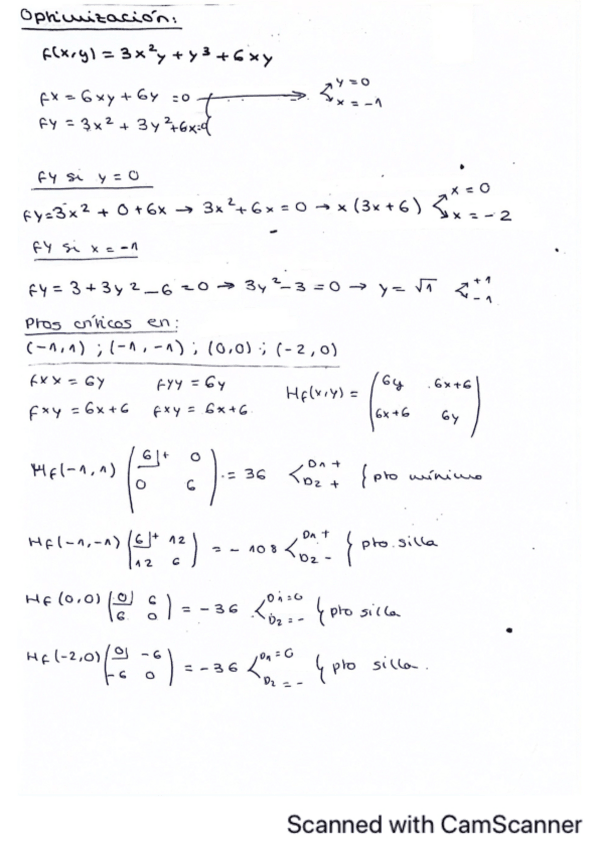 Optimización:
f(x,y) = 3x²y + y³ + 6xy
fx = 6xy + 6y = 0 → y = 0
x = -1
fy = 3x² + 3y² + 6x = 0
fy si y = 0
fy = 3x² + 0 + 6x → 3x² + 6x = 0 → x (3x + 6) x = 0
x = -2
fy si x = -1
fy = 3 + 3y² - 6 = 0 → 3y² - 3 = 0 → y = √1 +1
-1
Ptos críticos en:
(-1,1) ; (-1,-1) ; (0,0) ; (-2,0)
fxx = 6y fyy = 6y
fxy = 6x+6 fxy = 6x+6
Hf(x,y) = (6y 6x+6
6x+6 6y)
Hf(-1,1) (6|+ 0
0 6) = 36 < D1 +
D2 + } pto mínimo
Hf(-1,-1) (6|+ 12
12 6) = -108 < D1 +
D2 - } pto. silla
Hf(0,0) (0| 6
6 0) = -36 < D1=0
D2 = - } pto silla
Hf(-2,0) (0| -6
-6 0) = -36 < D1 = 0
D2 = - } pto silla.
Scanned with CamScanner